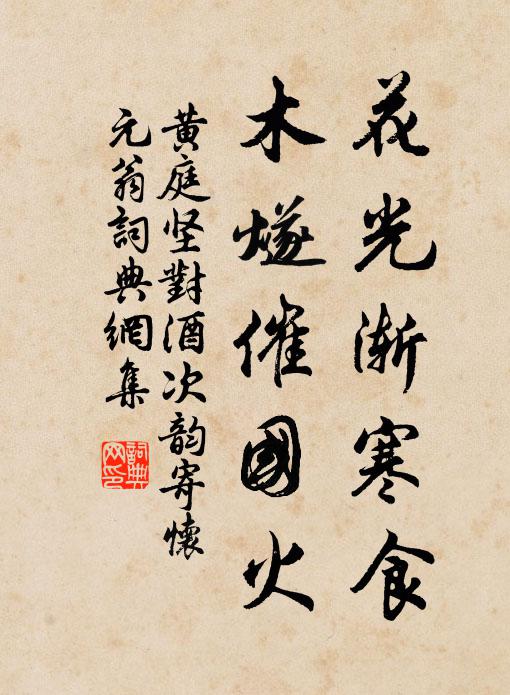 花光漸寒食
木燧催國火
黃庭坚對酒次韵寄懷
元翁詞典網集
詞典
网印